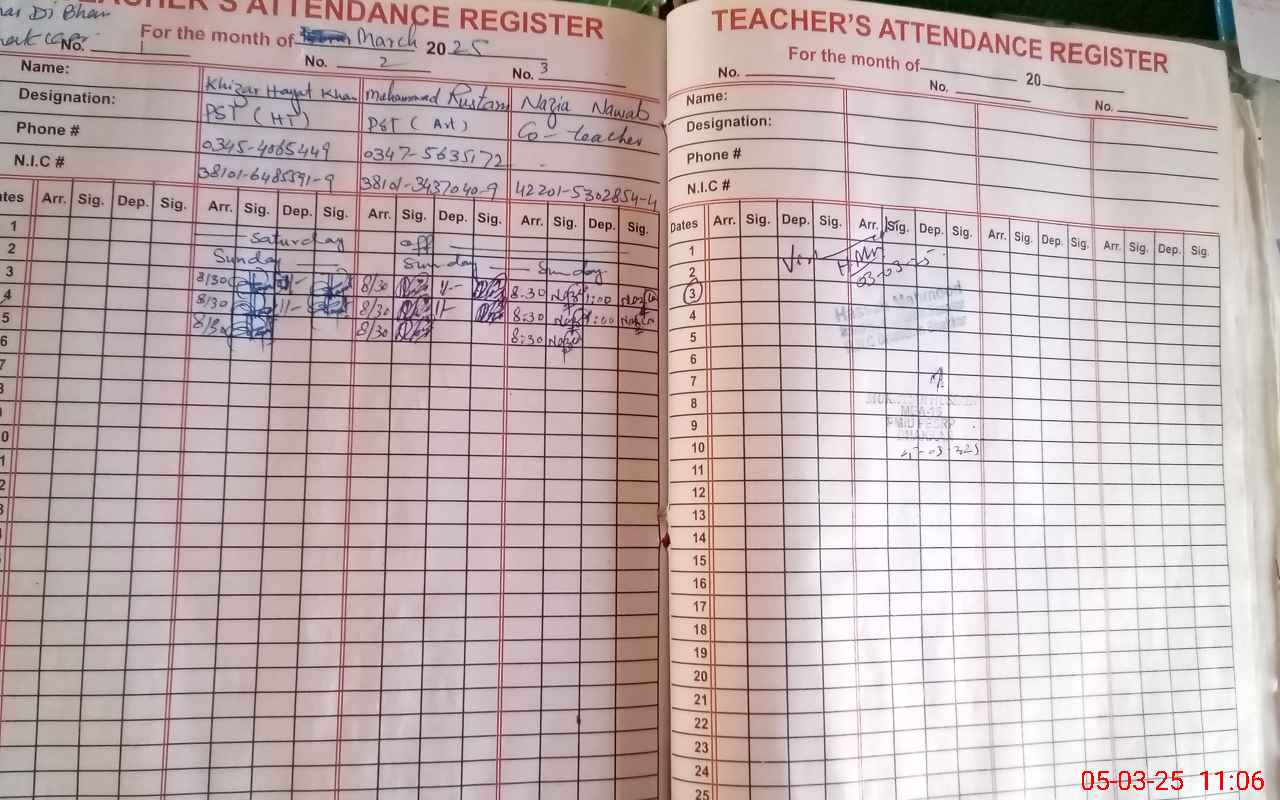 TEACHER'S ATTENDANCE REGISTER
Di Bhan
For the month of March 2025
No. 1 No. 2 No. 3
Name: Khizar Hayat Khan Muhammad Rustam Nazia Nawab
Designation: PST (HT) PST (Art) Co-teacher
Phone # 0345-4065449 0347-5635172 -
N.I.C # 38101-6485591-9 38101-3437040-9 42201-5302854-4
Dates Arr. Sig. Dep. Sig. Arr. Sig. Dep. Sig. Arr. Sig. Dep. Sig. Arr. Sig. Dep. Sig.
1 Saturday off
2 Sunday Sunday Sunday
3 8/30 8/30 8:30 1:00
4 8/30 11- 8/30 11- 8:30 1:00
5 8/30 8/30 8:30
6
7
8
9
10
11
12
TEACHER'S ATTENDANCE REGISTER
For the month of 20
No. No. No.
Name:
Designation:
Phone #
N.I.C #
Dates Arr. Sig. Dep. Sig. Arr. Sig. Dep. Sig. Arr. Sig. Dep. Sig. Arr. Sig. Dep. Sig.
1
2 03-03-25
3
4
5
6
7
8
9
10
11
12
13
14
15
16
17
18
19
20
21
22
23
24
25
05-03-25 11:06